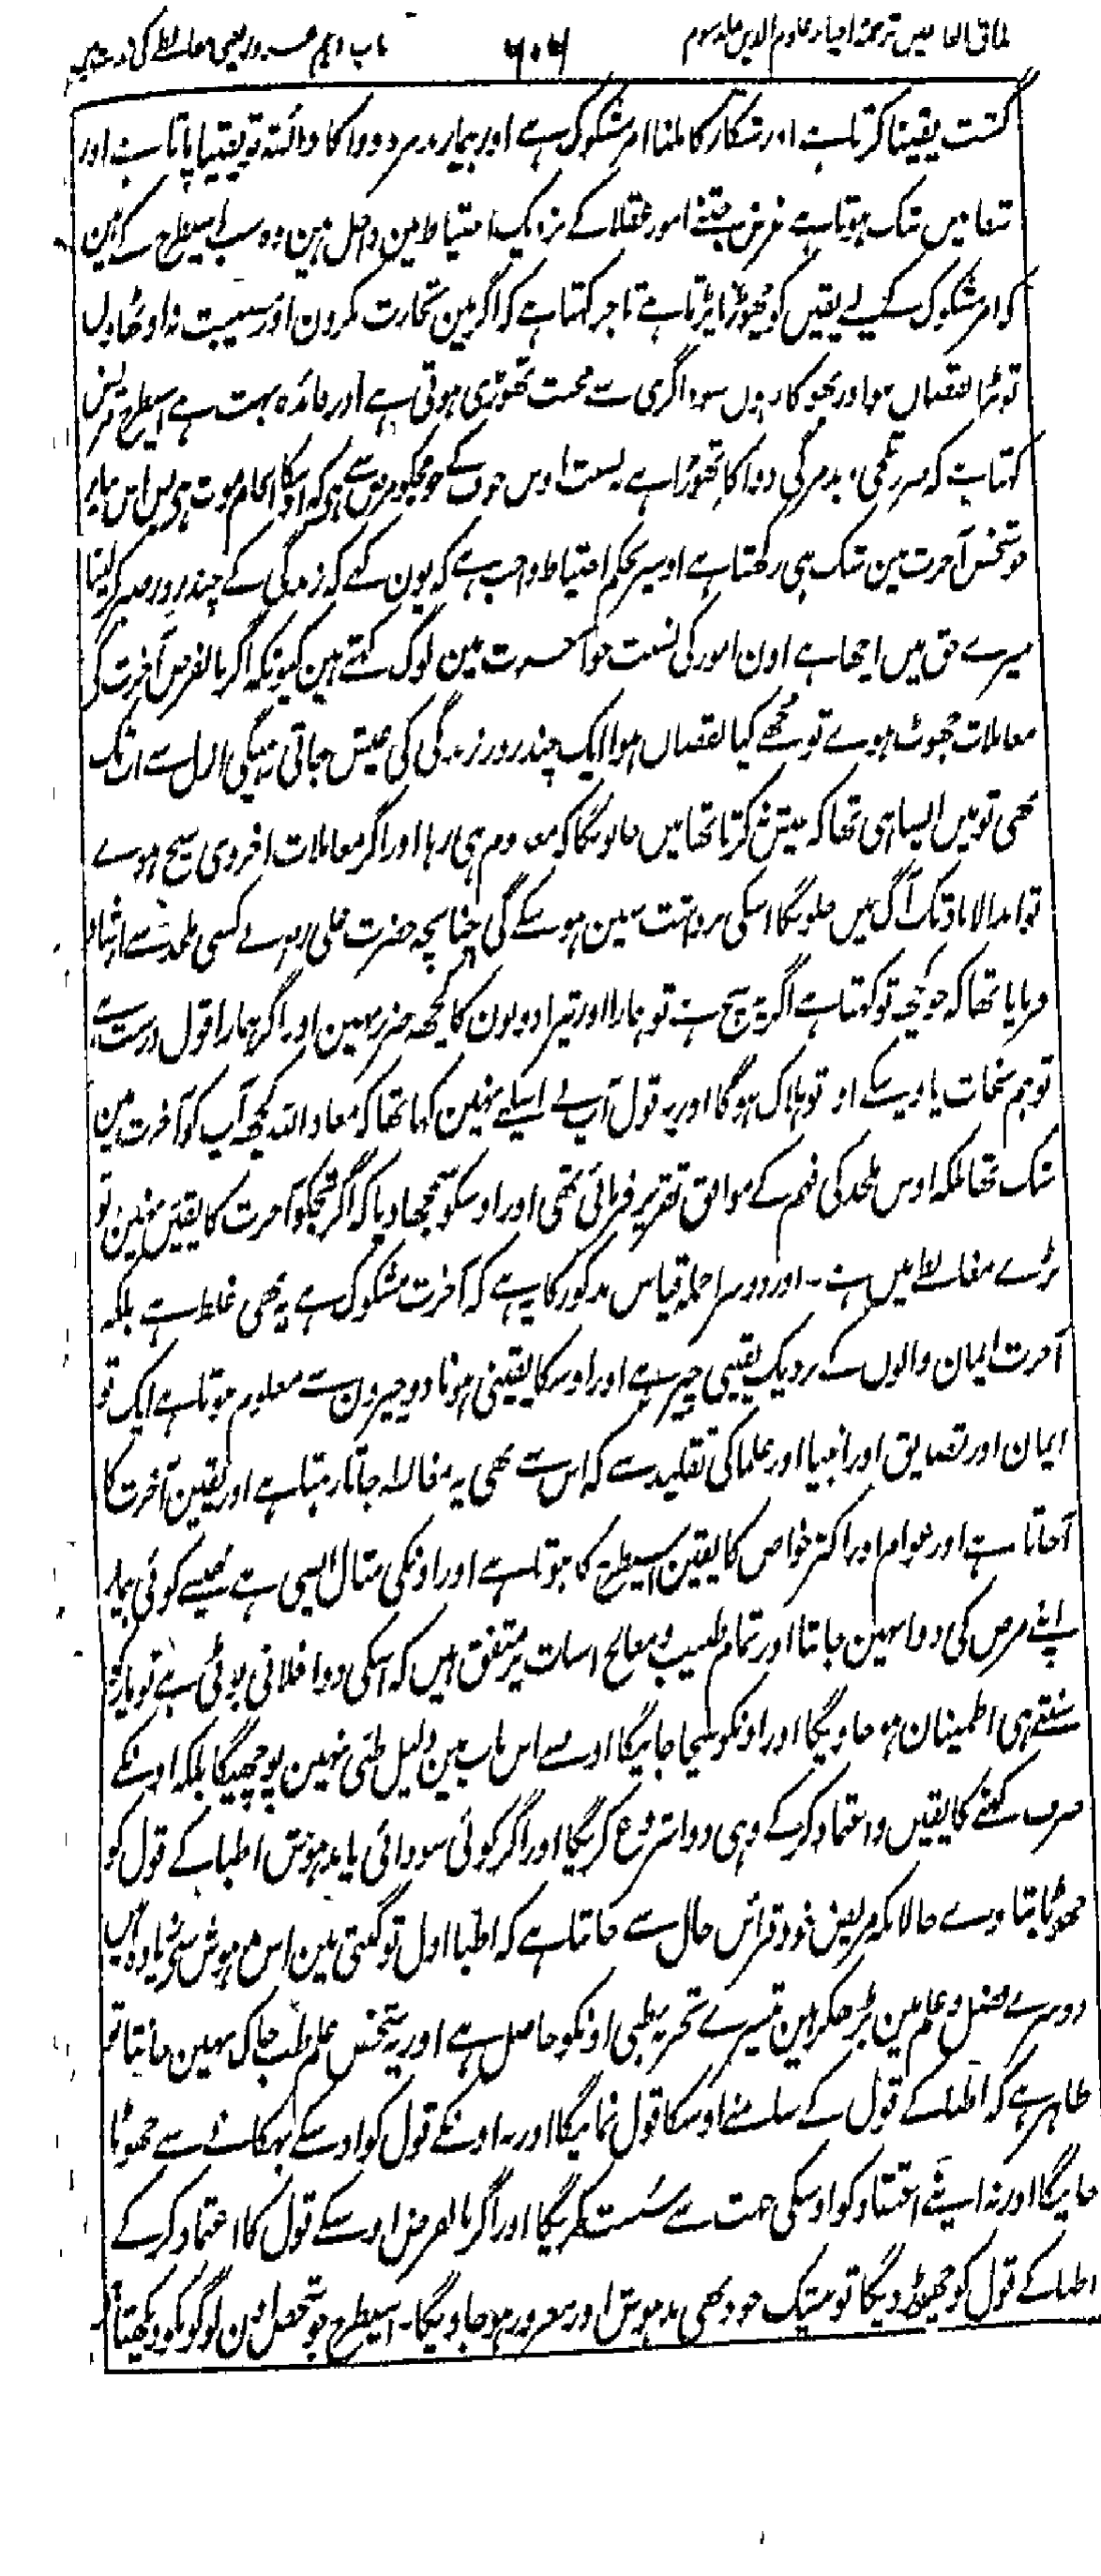 مذاق العارفین ترجمہ احیاء علوم الدین جلد سوم ۶۰۶ باب دہم غرور یعنی مغالطے کی
گشت یقینا کرتا ہے اور شکار کا ملنا امر مشکوک ہے اور بیمار بدمزہ دوا کا ذائقہ تو یقینا پاتا ہے اور
شفا میں شک ہوتا ہے غرض جتنے امور عقلا کے نزدیک احتیاط مین داخل ہین وہ سب اسیطرح کے ہین
کہ امر مشکوک کے لیے یقین کو چھوڑنا پڑتا ہے تاجر کہتا ہے کہ اگر مین تجارت نکرون اور مصیبت نہ اوٹھاؤں
تو بڑا نقصان ہو اور بھوکا رہوں سوداگری سے محنت تھوڑی ہوتی ہے اور فائدہ بہت ہے اسیطرح مریض
کہتا ہے کہ ضرر تلخی بدمزگی دوا کا تھوڑا ہے بہ نسبت اوس خوف کے جو مجکو مرض سے ہی کہ اوسکا انجام موت ہی پس اس بنا پر
جو شخص آخرت مین شک ہی رکھتا ہے اوسپر بحکم احتیاط واجب ہے کہ یون کہے کہ زندگی کے چند روز صبر کر لینا
میرے حق میں اچھا ہے اون امور کی نسبت جو آخرت مین لوگ کہتے ہین کیونکہ اگر بالفرض آخرت کی
معاملات جھوٹ ہوے تو مجھے کیا نقصان ہوا ایک چند روز زندگی کی عیش جاتی رہیگی ازل سے اب تک
بھی تو میں ایسا ہی تھا کہ عیش نکرتا تھا میں جانونگا کہ معدوم ہی رہا اور اگر معاملات اخروی سچ ہوے
تو ابدالاباد تک آگ میں جلونگا اسکی برداشت نہین ہو سکے گی چنانچہ حضرت علی رضہ نے کسی ملحد سے ارشاد
فرمایا تھا کہ جو کچھ تو کہتا ہے اگر یہ سچ ہے تو ہمارا اور تیرا دونون کا کچھ ضرر نہین اور اگر ہمارا قول درست ہے
تو ہم نجات پاوینگے اور تو ہلاک ہوگا اور یہ قول آپ نے اسلیے نہین کہا تھا کہ معاذ اللہ کچھ آپ کو آخرت مین
شک تھا بلکہ اوس ملحد کی فہم کے موافق تقریر فرمائی تھی اور اوسکو سمجھا دیا کہ اگر تجکو آخرت کا یقین نہین تو
بڑے مغالطے میں ہے ۔ اور دوسرا جملہ قیاس مذکور کا یہ ہے کہ آخرت مشکوک ہے یہ بھی غلط ہے بلکہ
آخرت ایمان والوں کے نزدیک یقینی چیز ہے اور اوسکا یقینی ہونا دو چیزون سے معلوم ہوتا ہے ایک تو
ایمان اور تصدیق اور انبیا اور علما کی تقلید سے کہ اس سے بھی یہ مغالطہ جاتا رہتا ہے اور یقین آخرت کا
آجاتا ہے اور عوام اور اکثر خواص کا یقین اسیطرح کا ہوتا ہے اور اونکی مثال ایسی ہے جیسے کوئی بیمار
اپنے مرض کی دوا نہین جانتا اور تمام طبیب و معالج اسبات پر متفق ہیں کہ اسکی دوا فلانی بوٹی ہے تو بیمار کو
سنتے ہی اطمینان ہو جاویگا اور اونکو سچا جانیگا اون سے اس باب مین دلیل طبی نہین پوچھیگا بلکہ اونکے
صرف کہنے کا یقین و اعتماد کر کے وہی دوا شروع کریگا اور اگر کوئی سودائی یا مدہوش اطبا کے قول کو
جھوٹا بتاوے حالانکہ مریض خود قرائن حال سے جانتا ہے کہ اطبا اول تو گنتی مین اس مدہوش سے زیادہ ہیں
دوسرے فضل و علم مین بڑھکر ہین تیسرے تجربہ طبی اونکو حاصل ہے اور یہ شخص علم طب خاک نہین جانتا تو
ظاہر ہے کہ اطبا کے قول کے سامنے اوسکا قول نمانیگا اور نہ اونکے قول کو اوسکے بہکانے سے جھوٹا
جانیگا اور نہ اپنے اعتقاد کو اوسکی جہت سے سست کریگا اور اگر بالفرض اوسکے قول کا اعتماد کر کے
اطبا کے قول کو چھوڑ دیگا تو بیشک خود بھی مدہوش اور مغرور ہو جاویگا ۔ اسیطرح جو شخص اون لوگونکو دیکھتا ہے